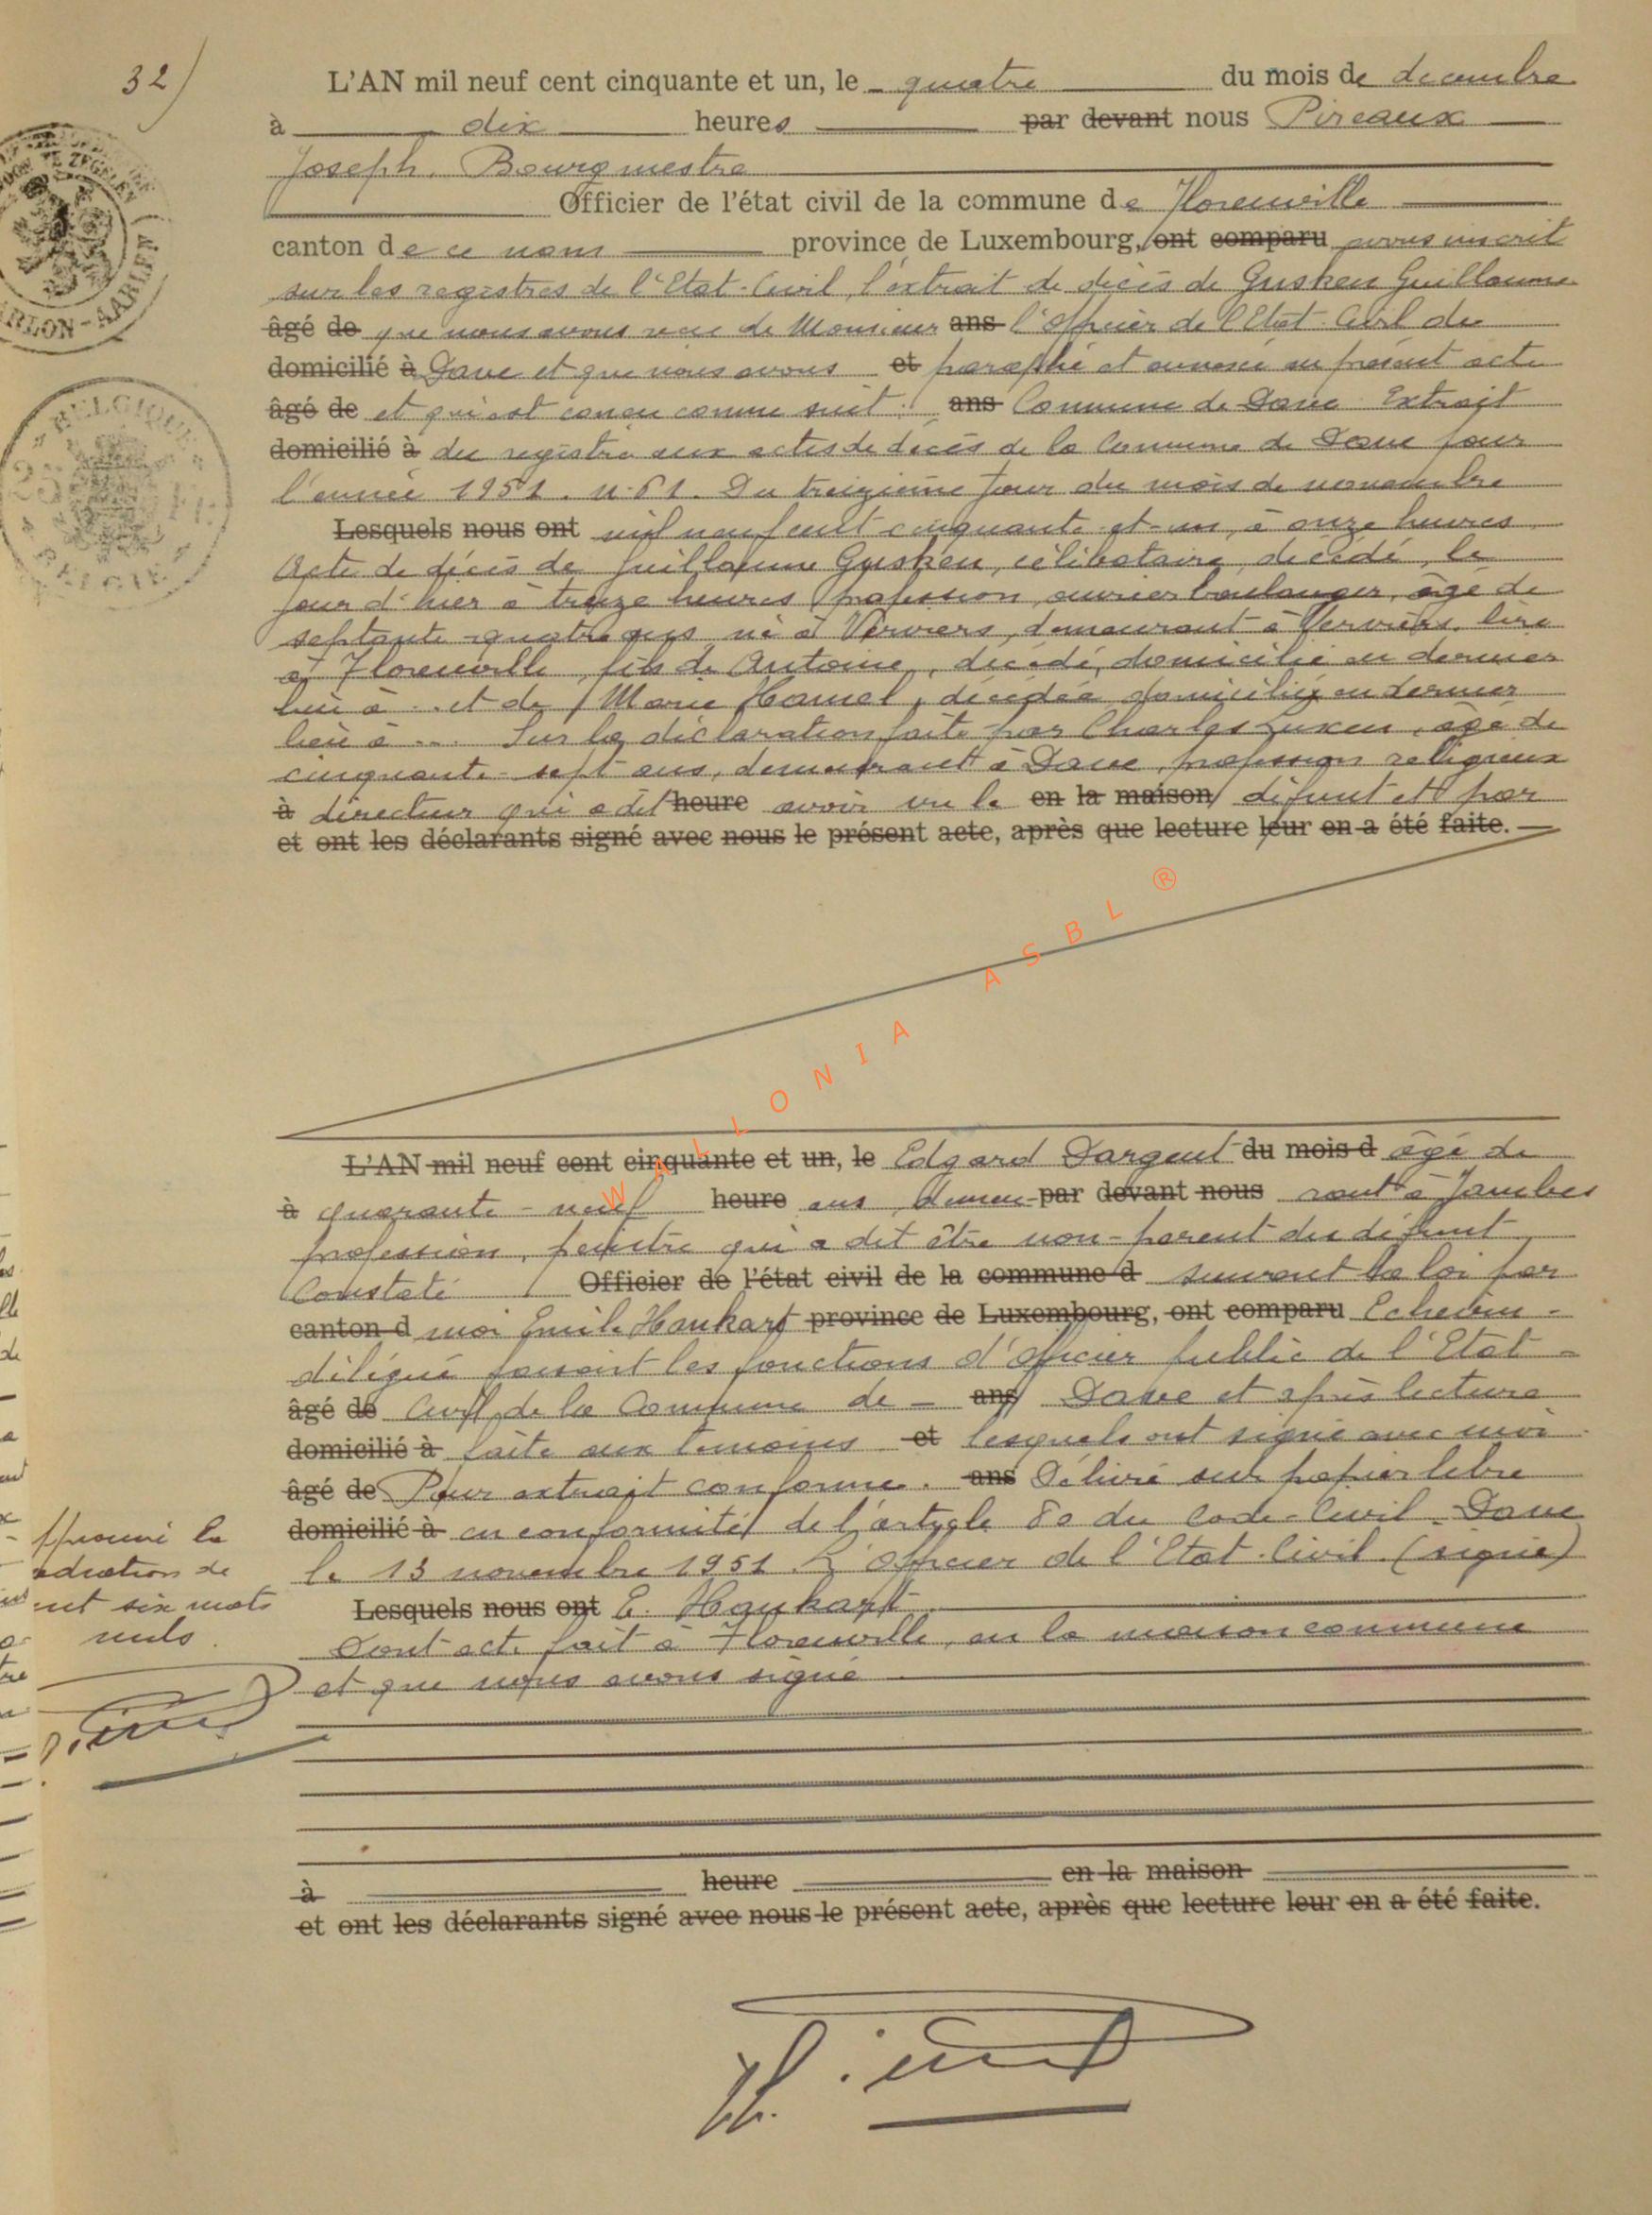 32)
L'AN mil neuf cent cinquante et un, le quatre du mois de decembre
à dix heures par devant nous Pireaux
Joseph, Bourgmestre
Officier de l'état civil de la commune de Florenville
canton de ce nom province de Luxembourg, ont comparu avons inscrit
sur les registres de l'Etat-Civil, l'extrait de décès de Gusken Guillaume
âgé de que nous avons recu de Monsieur ans l'Officier de l'Etat-Civil de
domicilié à Dave et que nous avons et paraphé et annexé au présent acte
âgé de et qui est concu comme suit : ans Commune de Dave Extrait
domicilié à du registre aux actes de décès de la Commune de Dave pour
l'année 1951. n. 61. Du treizième jour du mois de novembre
Lesquels nous ont mil neuf cent cinquante-et-un, à onze heures
Acte de décès de Guillaume Gusken, célibataire, décédé, le
jour d'hier à treize heures profession, ouvrier boulanger, âgé de
septante-quatre ans né à Verviers, demeurant à Verviers, lire
à Florenville, fils de Antoine, décédé, domicilié en dernier
lieu à .. et de Marie Hamel, décédée domiciliée en dernier
lieu à ... Sur la déclaration faite par Charles Luxen, âgé de
cinquante-sept ans, demeurant à Dave, profession religieux
à directeur qui a dit heure avoir vu le en la maison défunt et par
et ont les déclarants signé avec nous le présent acte, après que lecture leur en a été faite.
WALLONIA ASBL ®
L'AN mil neuf cent cinquante et un, le Edgard Dargent du mois d âgé de
à quarante-neuf heure ans, demeu- par devant nous rant à Jambes
profession, peintre qui a dit être non-parent du défunt
Constaté Officier de l'état civil de la commune d suivant la loi par
canton d moi Emile Hankart province de Luxembourg, ont comparu Echevin-
délégué faisant les fonctions d'Officier public de l'Etat-
âgé de Civil, de la Commune de - ans Dave et après lecture
domicilié à faite aux temoins et lesquels ont signé avec moi
âgé de Pour extrait conforme. ans Délivré sur papier libre
domicilié à en conformité de l'article 80 du Code-Civil. Dave
le 13 novembre 1951. L'Officier de l'Etat-Civil. (signé)
Lesquels nous ont E. Hankart
Dont acte fait à Florenville, en la maison commune
et que nous avons signé
Approuvé la
radiation de
cent six mots
nuls.
à heure en la maison
et ont les déclarants signé avec nous le présent acte, après que lecture leur en a été faite.